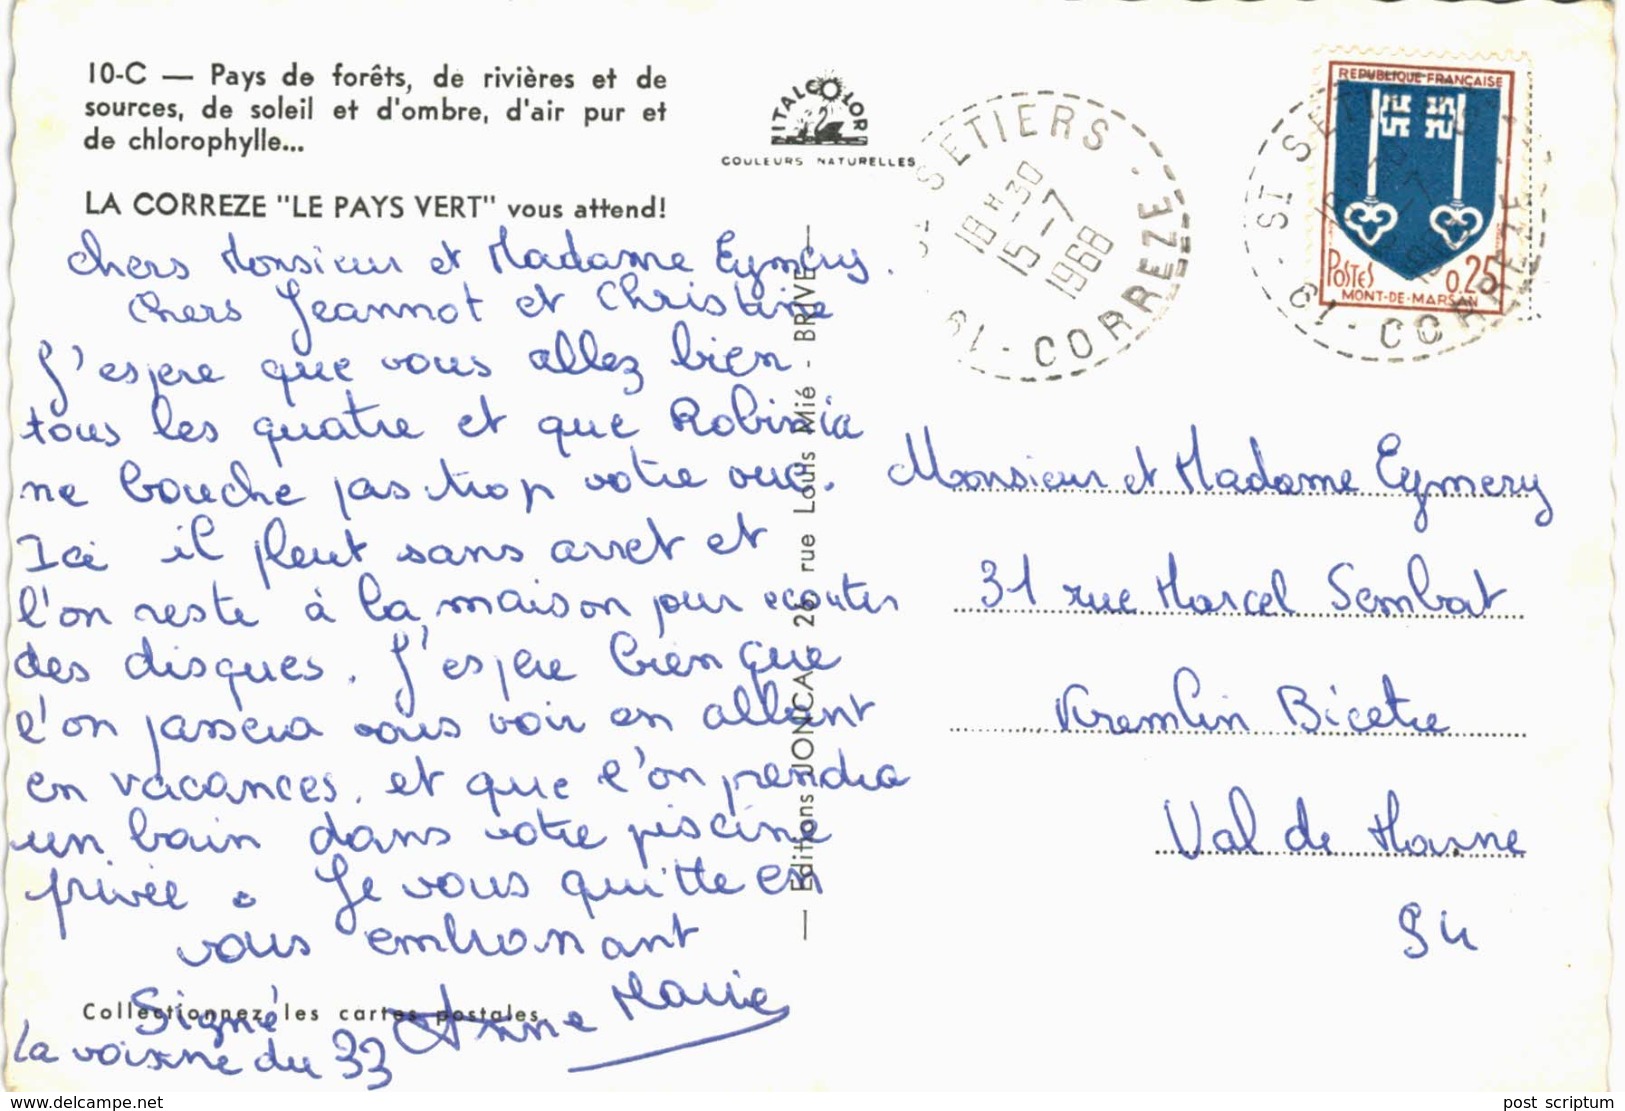 10-C — Pays de forêts, de rivières et de
sources, de soleil et d'ombre, d'air pur et
de chlorophylle...
LA CORREZE "LE PAYS VERT" vous attend!
ITALCOLOR
COULEURS NATURELLES
ST SETIERS
18 H-30
15-7
1968
19 - CORREZE
ST SETIERS
19 - CORREZE
REPUBLIQUE FRANÇAISE
POSTES 0.25
MONT-DE-MARSAN
chers Monsieur et Madame Eymery.
chers Jeannot et Christine
J'espere que vous allez bien
tous les quatre et que Robinia
ne bouche pas trop votre vue.
Ici il pleut sans arret et
l'on reste à la maison pour ecouter
des disques. J'espere bien que
l'on passera vous voir en allant
en vacances. et que l'on prendra
un bain dans votre piscine
privée. Je vous quitte en
vous embrassant
Signé Anne Marie
la voisine du 33
Collectionnez les cartes postales
— Editions JONCA, 26 rue Louis Mié - BRIVE —
Monsieur et Madame Eymery
31 rue Marcel Sembat
Kremlin Bicetre
Val de Marne
94
www.delcampe.net
post scriptum